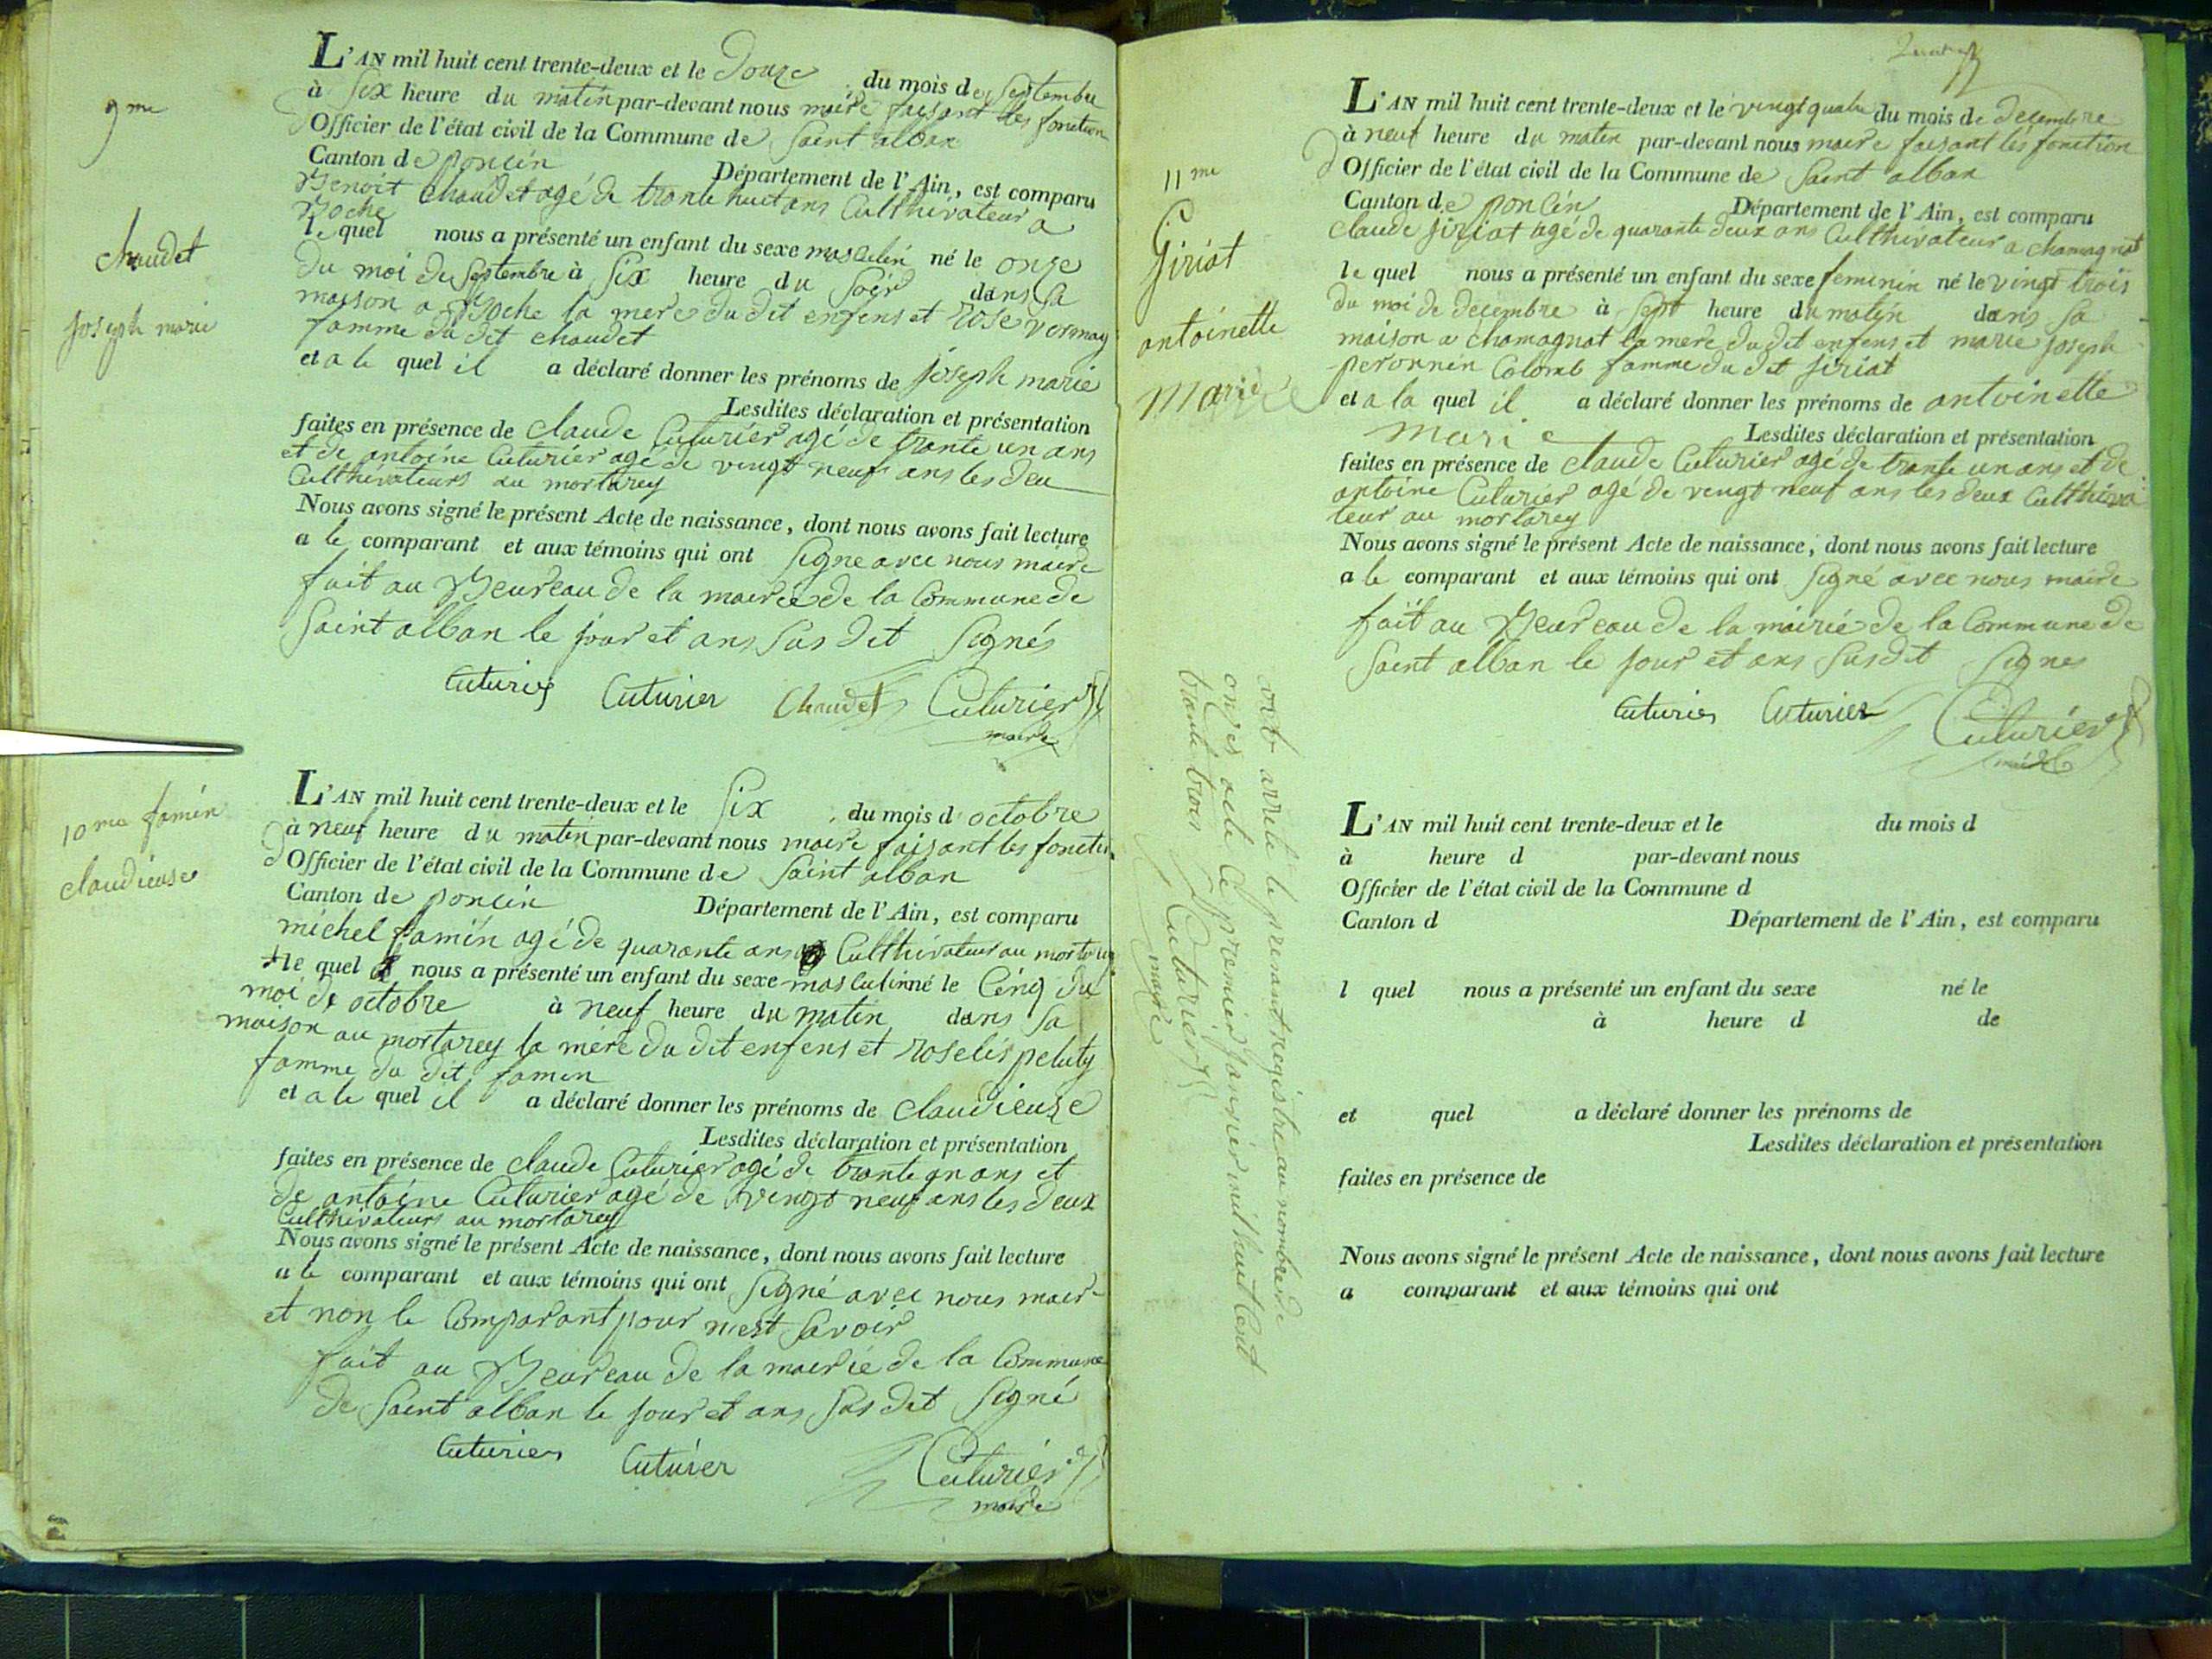 9me
chaudet
joseph marie
L'AN mil huit cent trente-deux et le douze du mois de septembre
à six heure du matin par-devant nous maire faisant les fonction
d Officier de l'état civil de la Commune de saint alban
Canton de poncin Département de l'Ain, est comparu
Benoit chaudet agé de trante huit ans Culthivateur a
Boche
le quel nous a présenté un enfant du sexe masculin né le onze
du moi de septembre à six heure du soir dans sa
maison a Boche la mere du dit enfens et rose vermay
famme du dit chaudet
et a le quel il a déclaré donner les prénoms de joseph marie
Lesdites déclaration et présentation
faites en présence de claude Cuturier agé de trante un ans
et de antoine Cuturier agé de vingt neuf ans les deu
Culthivateurs au mortarey
Nous avons signé le présent Acte de naissance, dont nous avons fait lecture
a le comparant et aux témoins qui ont signe avec nous maire
fait au Beureau de la mairie de la Commune de
saint alban le jour et ans sus dit signés
Cuturier Cuturier Chaudet Cuturier
maire
10me famin
claudieuse
L'AN mil huit cent trente-deux et le six du mois d'octobre
à neuf heure du matin par-devant nous maire faisant les fonction
d Officier de l'état civil de la Commune de saint alban
Canton de poncin Département de l'Ain, est comparu
michel famin agé de quarante ans Culthivateur au mortarey
le quel nous a présenté un enfant du sexe masculin né le Cinq du
moi de octobre à neuf heure du matin dans sa
maison au mortarey la mére du dit enfens et roselis peluty
famme du dit famin
et a le quel il a déclaré donner les prénoms de claudieuse
Lesdites déclaration et présentation
faites en présence de claude Cuturier agé de trante un ans et
de antoine Cuturier agé de vingt neuf ans les deux
Culthivateurs au mortarey
Nous avons signé le présent Acte de naissance, dont nous avons fait lecture
a le comparant et aux témoins qui ont signé avec nous mair
et non le Comparant pour n'est savoir
fait au Beureau de la mairie de la Commune
de saint alban le jour et ans sus dit signé
Cuturier Cuturier Cuturier
maire
11me
Giriat
antoinette
Marie
L'AN mil huit cent trente-deux et le vingt quatre du mois de decembre
à neuf heure du matin par-devant nous maire faisant les fonction
d Officier de l'état civil de la Commune de saint alban
Canton de poncin Département de l'Ain, est comparu
claude jiriat agé de quarante deux ans Culthivateur a chamagnat
le quel nous a présenté un enfant du sexe feminin né le vingt trois
du moi de decembre à sept heure du matin dans sa
maison a chamagnat la mere du dit enfens et marie joseph
peronnin Colomb famme du dit jiriat
et a la quel il a déclaré donner les prénoms de antoinette
marie Lesdites déclaration et présentation
faites en présence de claude Cuturier agé de trante un ans et de
antoine Cuturier agé de vingt neuf ans les deux Culthiva
teur au mortarey
Nous avons signé le présent Acte de naissance, dont nous avons fait lecture
a le comparant et aux témoins qui ont signé avec nous maire
fait au Beureau de la mairie de la Commune de
saint alban le jour et ans susdit signes
Cuturier Cuturier Cuturier
maire
arrete le presant registre au nombre de
onzes acte Ce premier janvier mil huit Cent
trante trois Cuturier
maire
L'AN mil huit cent trente-deux et le du mois d
à heure d par-devant nous
Officier de l'état civil de la Commune d
Canton d Département de l'Ain, est comparu
l quel nous a présenté un enfant du sexe né le
à heure d de
et quel a déclaré donner les prénoms de
Lesdites déclaration et présentation
faites en présence de
Nous avons signé le présent Acte de naissance, dont nous avons fait lecture
a comparant et aux témoins qui ont